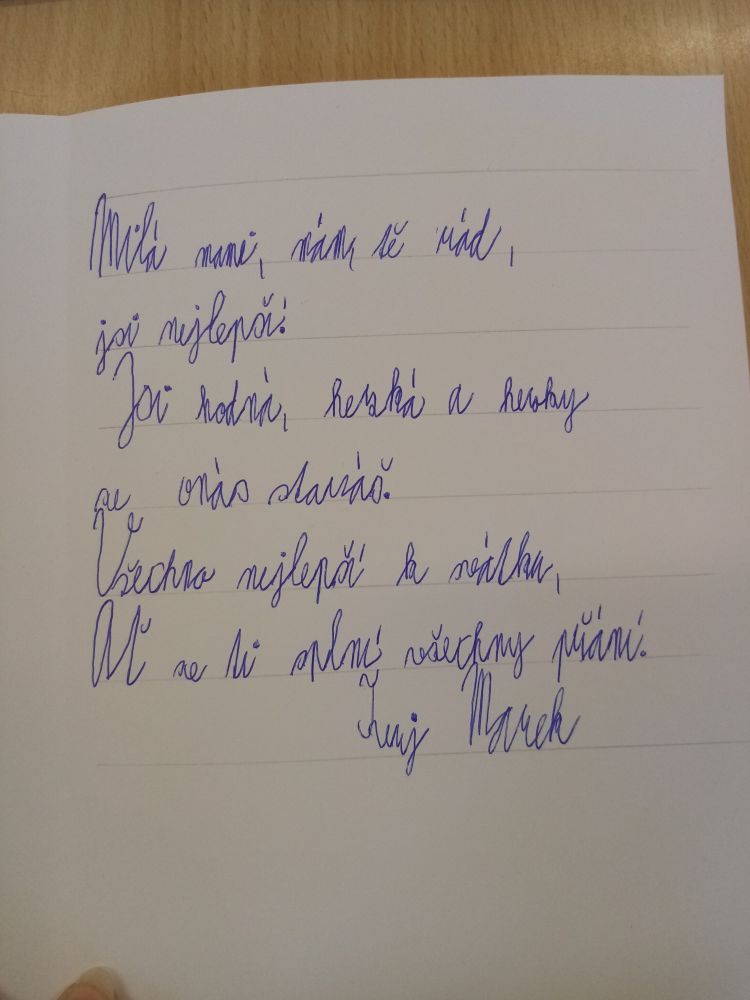 Milá mami, mám tě rád,
jsi nejlepší!
Jsi hodná, hezká a hezky
se onás staráš.
Všechno nejlepší k svátku,
Ať se ti splní všechny přání.
Tvůj Marek